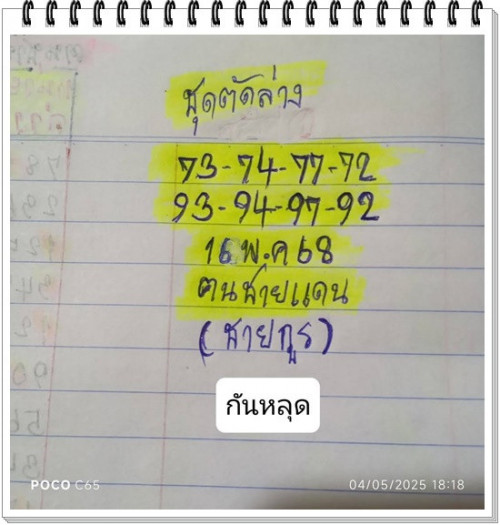 ชุดตัดล่าง
73-74-77-72
93-94-97-92
16 พ.ค 68
ฅนชายแดน
(สายกูร)
กันหลุด
POCO C65
04/05/2025 18:18